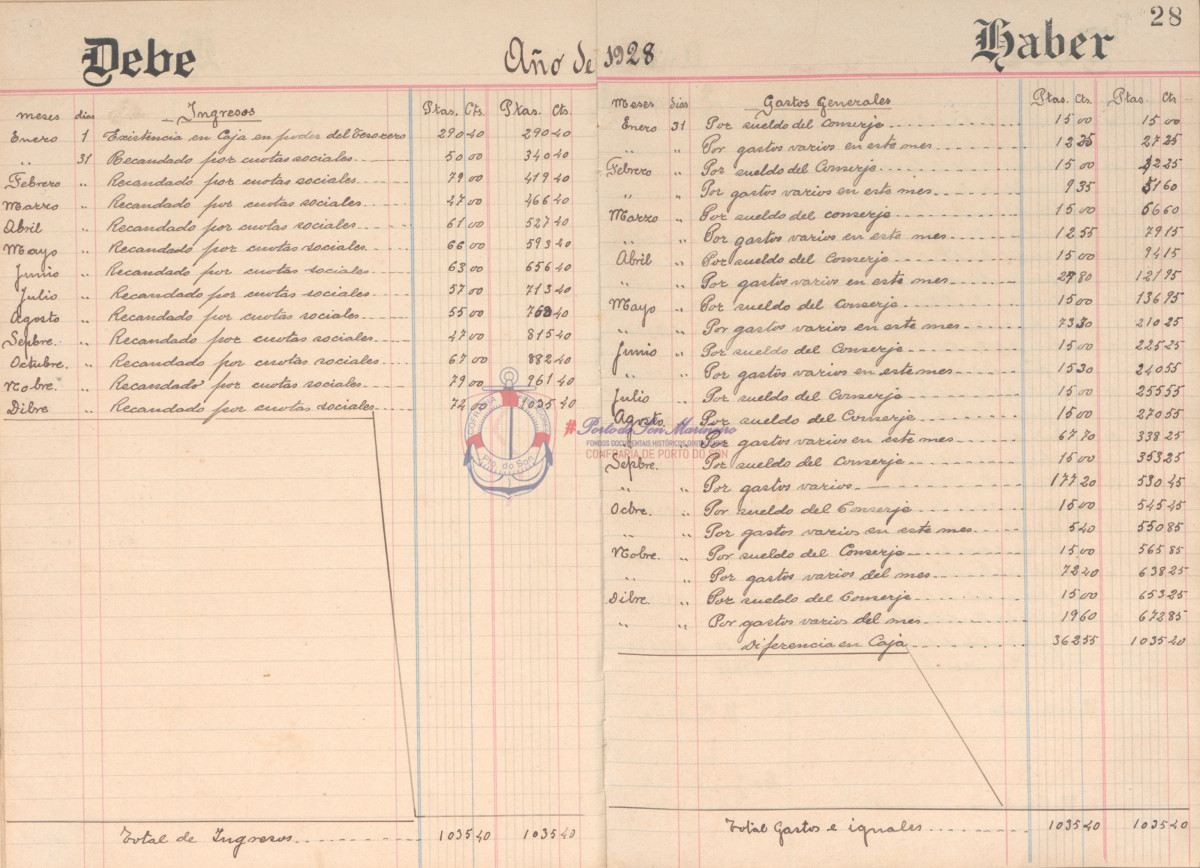 28
Debe Año de 1928 Haber
meses dias Ingresos Ptas. Cts. Ptas. Cts.
Enero 1 Existencia en Caja en poder del tesorero 290 40 290 40
" 31 Recaudado por cuotas sociales 50 00 340 40
Febrero " Recaudado por cuotas sociales 79 00 419 40
Marzo " Recaudado por cuotas sociales 47 00 466 40
Abril " Recaudado por cuotas sociales 61 00 527 40
Mayo " Recaudado por cuotas sociales 66 00 593 40
Junio " Recaudado por cuotas sociales 63 00 656 40
Julio " Recaudado por cuotas sociales 57 00 713 40
Agosto " Recaudado por cuotas sociales 55 00 768 40
Sepbre. " Recaudado por cuotas sociales 47 00 815 40
Octubre. " Recaudado por cuotas sociales 67 00 882 40
Nobre. " Recaudado por cuotas sociales 79 00 961 40
Dibre " Recaudado por cuotas sociales 74 00 1035 40
Total de Ingresos 1035 40 1035 40
Meses dias Gastos Generales Ptas. Cts. Ptas. Cts.
Enero 31 Por sueldo del Conserje 15 00 15 00
" " Por gastos varios en este mes 12 25 27 25
Febrero " Por sueldo del Conserje 15 00 42 25
" " Por gastos varios en este mes 9 35 51 60
Marzo " Por sueldo del conserje 15 00 66 60
" " Por gastos varios en este mes 12 55 79 15
Abril " Por sueldo del Conserje 15 00 94 15
" " Por gastos varios en este mes 27 80 121 95
Mayo " Por sueldo del Conserje 15 00 136 95
" " Por gastos varios en este mes 73 30 210 25
Junio " Por sueldo del Conserje 15 00 225 25
" " Por gastos varios en este mes 15 30 240 55
Julio " Por sueldo del Conserje 15 00 255 55
Agosto " Por sueldo del Conserje 15 00 270 55
" " Por gastos varios en este mes 67 70 338 25
Sepbre. " Por sueldo del Conserje 15 00 353 25
" " Por gastos varios 177 20 530 45
Ocbre. " Por sueldo del Conserje 15 00 545 45
" " Por gastos varios en este mes 5 40 550 85
Nobre. " Por sueldo del Conserje 15 00 565 85
" " Por gastos varios del mes 72 40 638 25
Dibre. " Por sueldo del Conserje 15 00 653 25
" " Por gastos varios del mes 19 60 672 85
Diferencia en Caja 362 55 1035 40
Total Gastos e iguales 1035 40 1035 40
Pto. do Son
#Porto do Son Mariñeiro
CONFRARIA DE PORTO DO SON